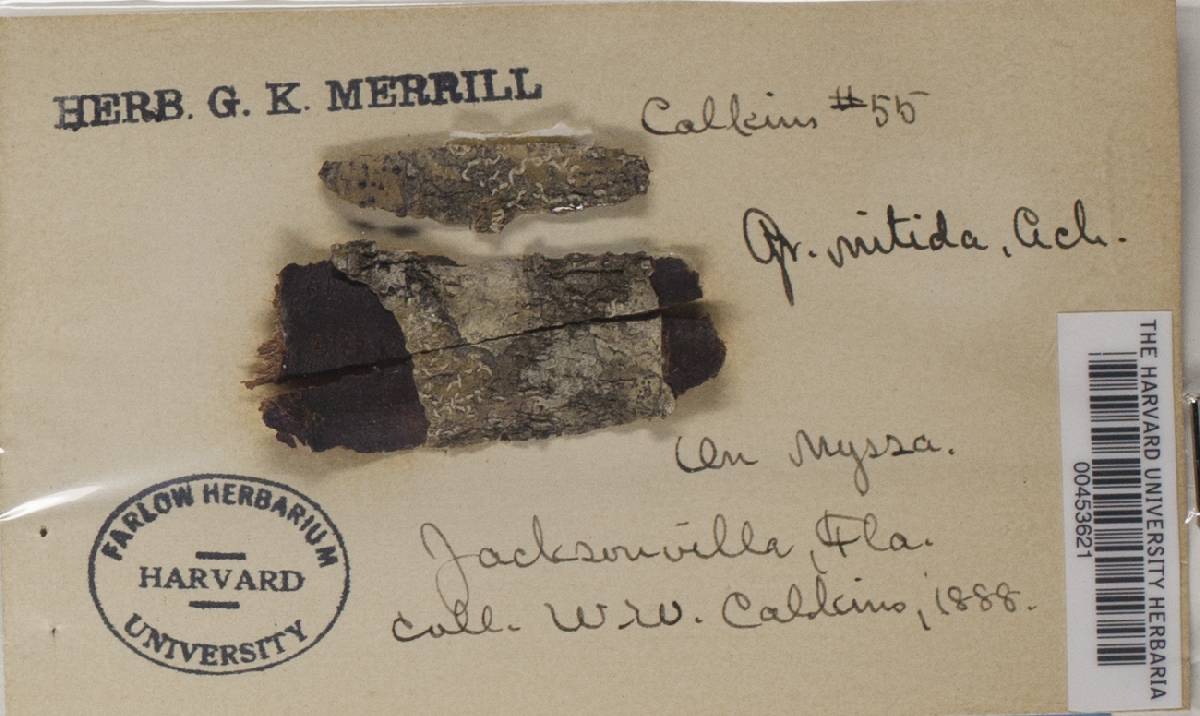 HERB. G. K. MERRILL
Calkins #55
Pyr. nitida, Ach.
On Nyssa.
Jacksonville, Fla.
coll. W.W. Calkins, 1888.
FARLOW HERBARIUM
HARVARD
UNIVERSITY
THE HARVARD UNIVERSITY HERBARIA
00453621